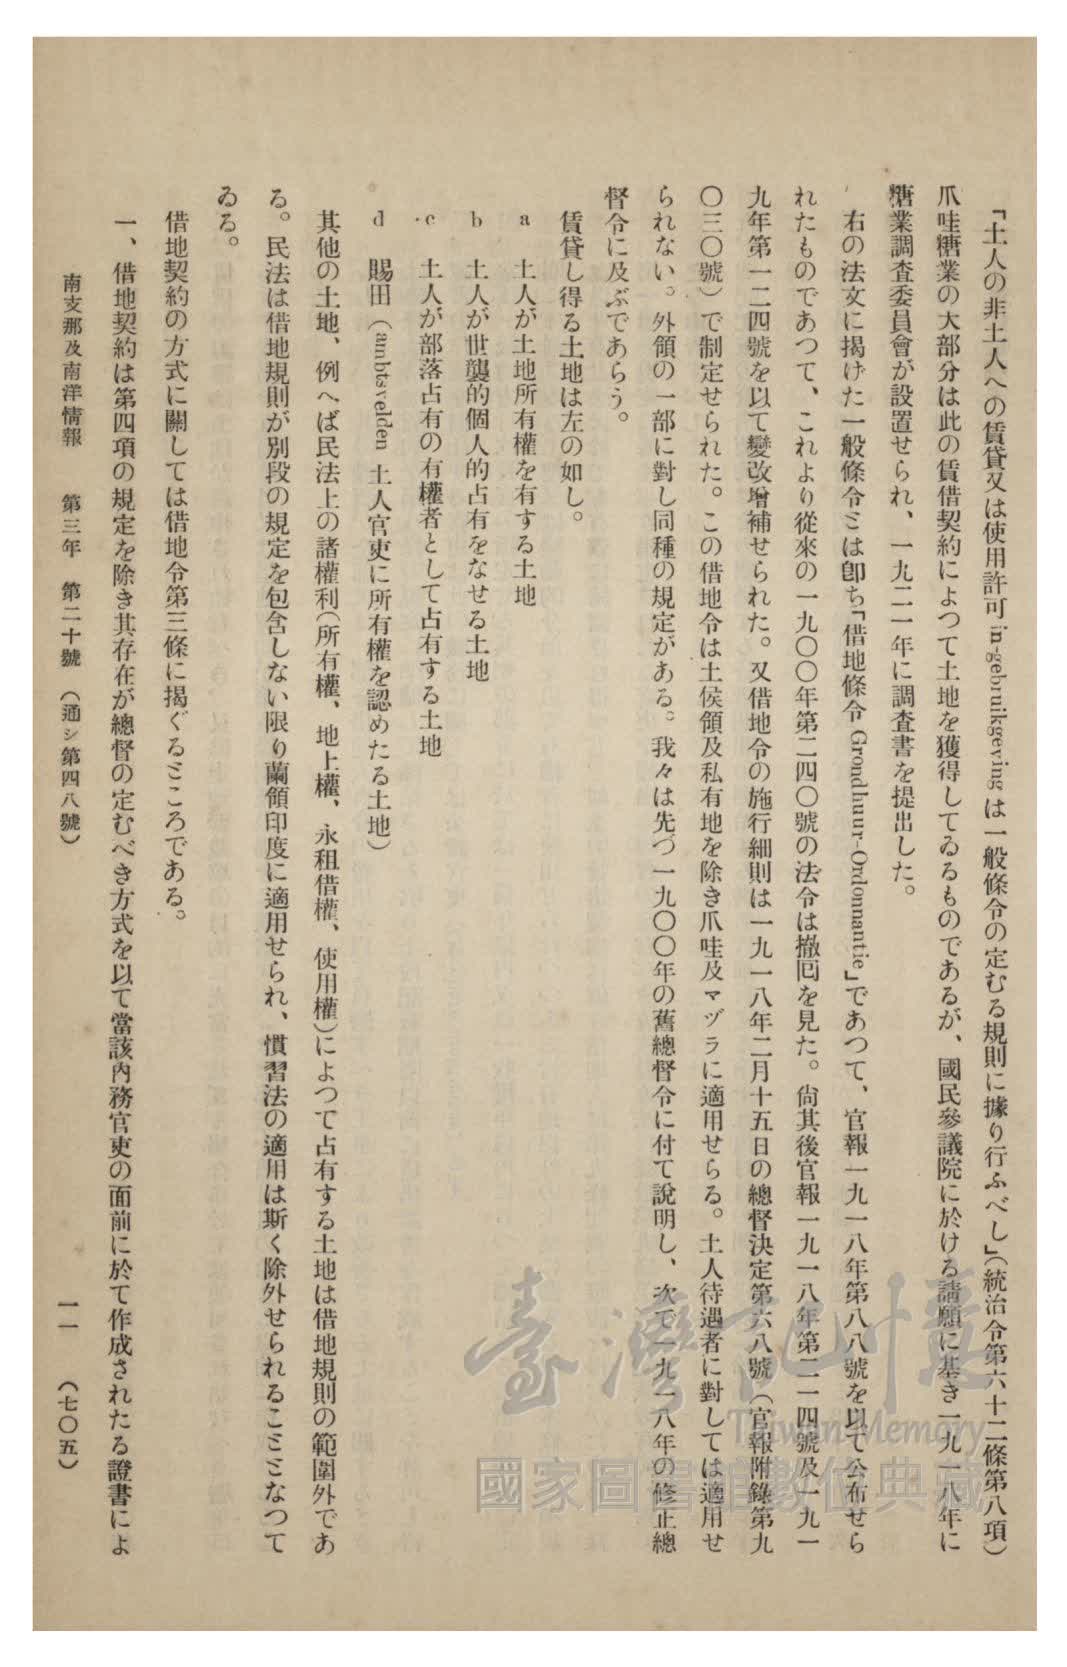 「土人の非土人への賃貸又は使用許可 in-gebruikgeving は一般條令の定むる規則に據り行ふべし」（統治令第六十二條第八項）
爪哇糖業の大部分は此の賃借契約によつて土地を獲得してゐるものであるが、國民參議院に於ける請願に基き一九一八年に
糖業調査委員會が設置せられ、一九二一年に調査書を提出した。
右の法文に揭げた一般條令とは卽ち「借地條令 Grondhuur-Ordonnantie」であつて、官報一九一八年第八八號を以て公布せら
れたものであつて、これより從來の一九〇〇年第二四〇號の法令は撤囘を見た。尙其後官報一九一八年第二一四號及一九一
九年第一二四號を以て變改增補せられた。又借地令の施行細則は一九一八年二月十五日の總督決定第六八號（官報附錄第九
〇三〇號）で制定せられた。この借地令は土侯領及私有地を除き爪哇及マヅラに適用せらる。土人待遇者に對しては適用せ
られない。外領の一部に對し同種の規定がある。我々は先づ一九〇〇年の舊總督令に付て說明し、次で一九一八年の修正總
督令に及ぶであらう。
賃貸し得る土地は左の如し。
a　土人が土地所有權を有する土地
b　土人が世襲的個人的占有をなせる土地
c　土人が部落占有の有權者として占有する土地
d　賜田（ambtsvelden 土人官吏に所有權を認めたる土地）
其他の土地、例へば民法上の諸權利（所有權、地上權、永租借權、使用權）によつて占有する土地は借地規則の範圍外であ
る。民法は借地規則が別段の規定を包含しない限り蘭領印度に適用せられ、慣習法の適用は斯く除外せられることとなつて
ゐる。
借地契約の方式に關しては借地令第三條に揭ぐるところである。
一、借地契約は第四項の規定を除き其存在が總督の定むべき方式を以て當該內務官吏の面前に於て作成されたる證書によ
南支那及南洋情報　第三年　第二十號　（通シ第四八號）　一一　（七〇五）
臺灣記憶
Taiwan Memory
國家圖書館數位典藏